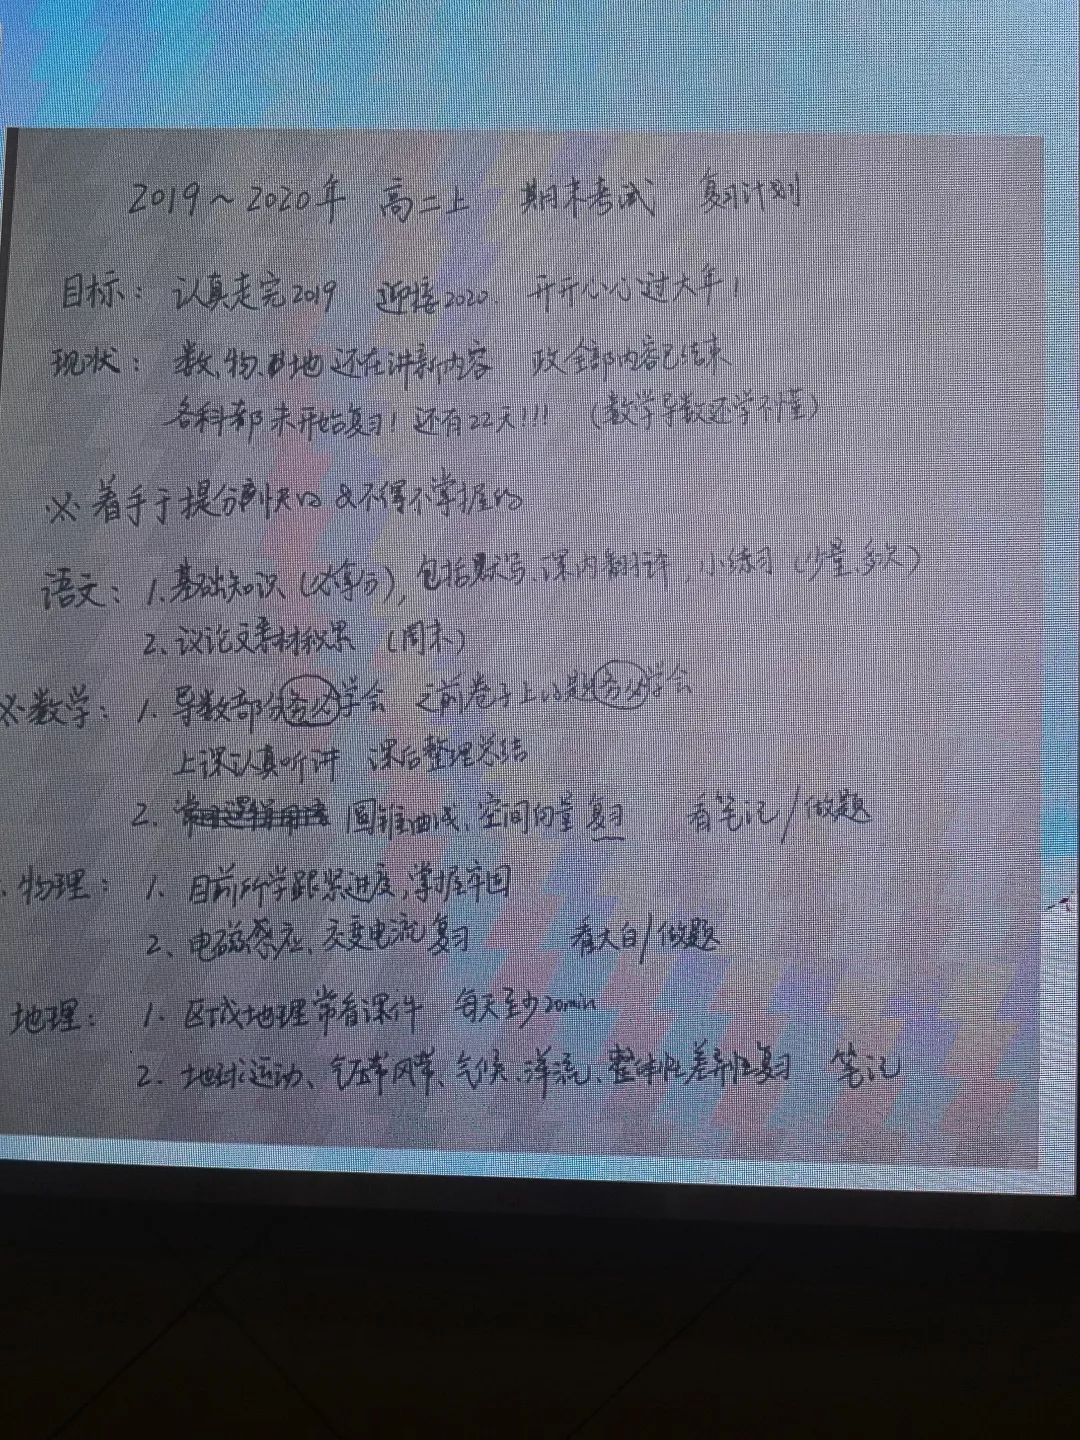 2019~2020年 高二上 期末考试 复习计划
目标: 认真走完2019 迎接2020. 开开心心过大年!
现状: 数、物、地还在讲新内容 政全部内容已结束
各科都未开始复习! 还有22天!!! (数学导数还学不懂)
※ 着手于提分快的 & 不得不掌握的
语文: 1.基础知识 (才拿分), 包括默写、课内翻译, 小练习 (少量、多次)
2、议论文素材积累 (周末)
※数学: 1. 导数部分务必学会 之前卷子上的题务必学会
上课认真听讲 课后整理总结
2. 圆锥曲线、空间向量复习 看笔记/做题
物理: 1. 目前所学跟紧进度, 掌握牢固
2、电磁感应、交变电流复习 看大白/做题
地理: 1. 区域地理常看课件 每天至少20min
2. 地球运动、气压带风带、气候、洋流、整体性差异性复习 笔记